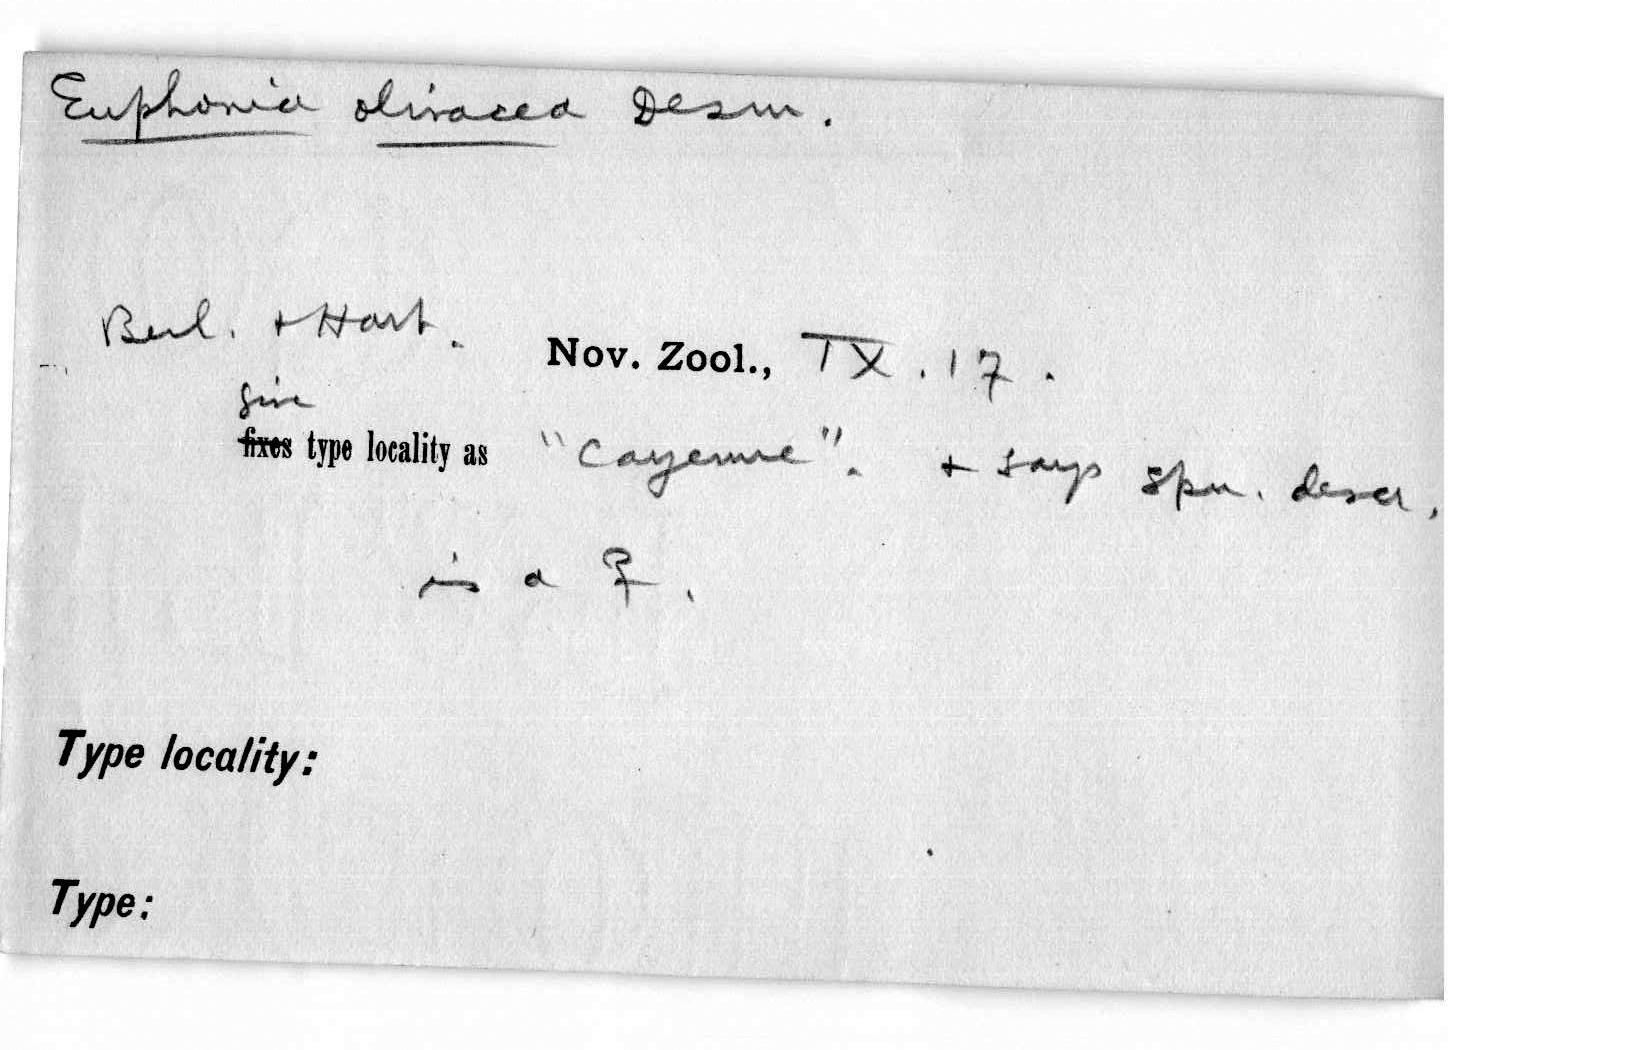 Euphonia olivacea Desm.
Berl. + Hart. Nov. Zool., IX. 17.
give
fixes type locality as "Cayenne". + says spm. descr.
is a ♀.
Type locality:
Type: